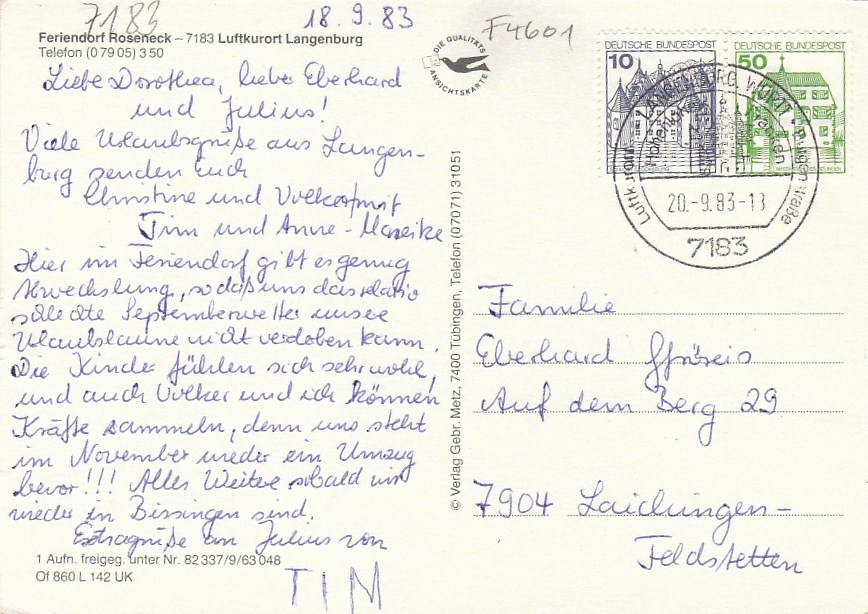 7183
18.9.83
F4601
Feriendorf Roseneck – 7183 Luftkurort Langenburg
Telefon (0 79 05) 3 50
DIE QUALITÄTS
ANSICHTSKARTE
Liebe Dorothea, lieber Eberhard
und Julius!
Viele Urlaubsgrüße aus Langen-
burg senden Euch
Christine und Volker mit
Tim und Anne-Mareike
Hier im Feriendorf gibt es genug
Abwechslung, sodaß uns das relativ
schlechte Septemberwetter unsere
Urlaubslaune nicht verderben kann.
Die Kinder fühlen sich sehr wohl,
und auch Volker und ich können
Kräfte sammeln, denn uns steht
im November wieder ein Umzug
bevor!!! Alles Weitere sobald wir
wieder in Bissingen sind.
Extragrüße an Julius von
TIM
1 Aufn. freigeg. unter Nr. 82 337/9/63 048
Of 860 L 142 UK
© Verlag Gebr. Metz, 7400 Tübingen, Telefon (07071) 31051
DEUTSCHE BUNDESPOST
10
DEUTSCHE BUNDESPOST
50
LANGENBURG, WÜRTT
Luftkurort
Burgenstraße
20.-9.83-13
7183
Familie
Eberhard
Auf dem Berg 29
7904 Laichingen-
Feldstetten